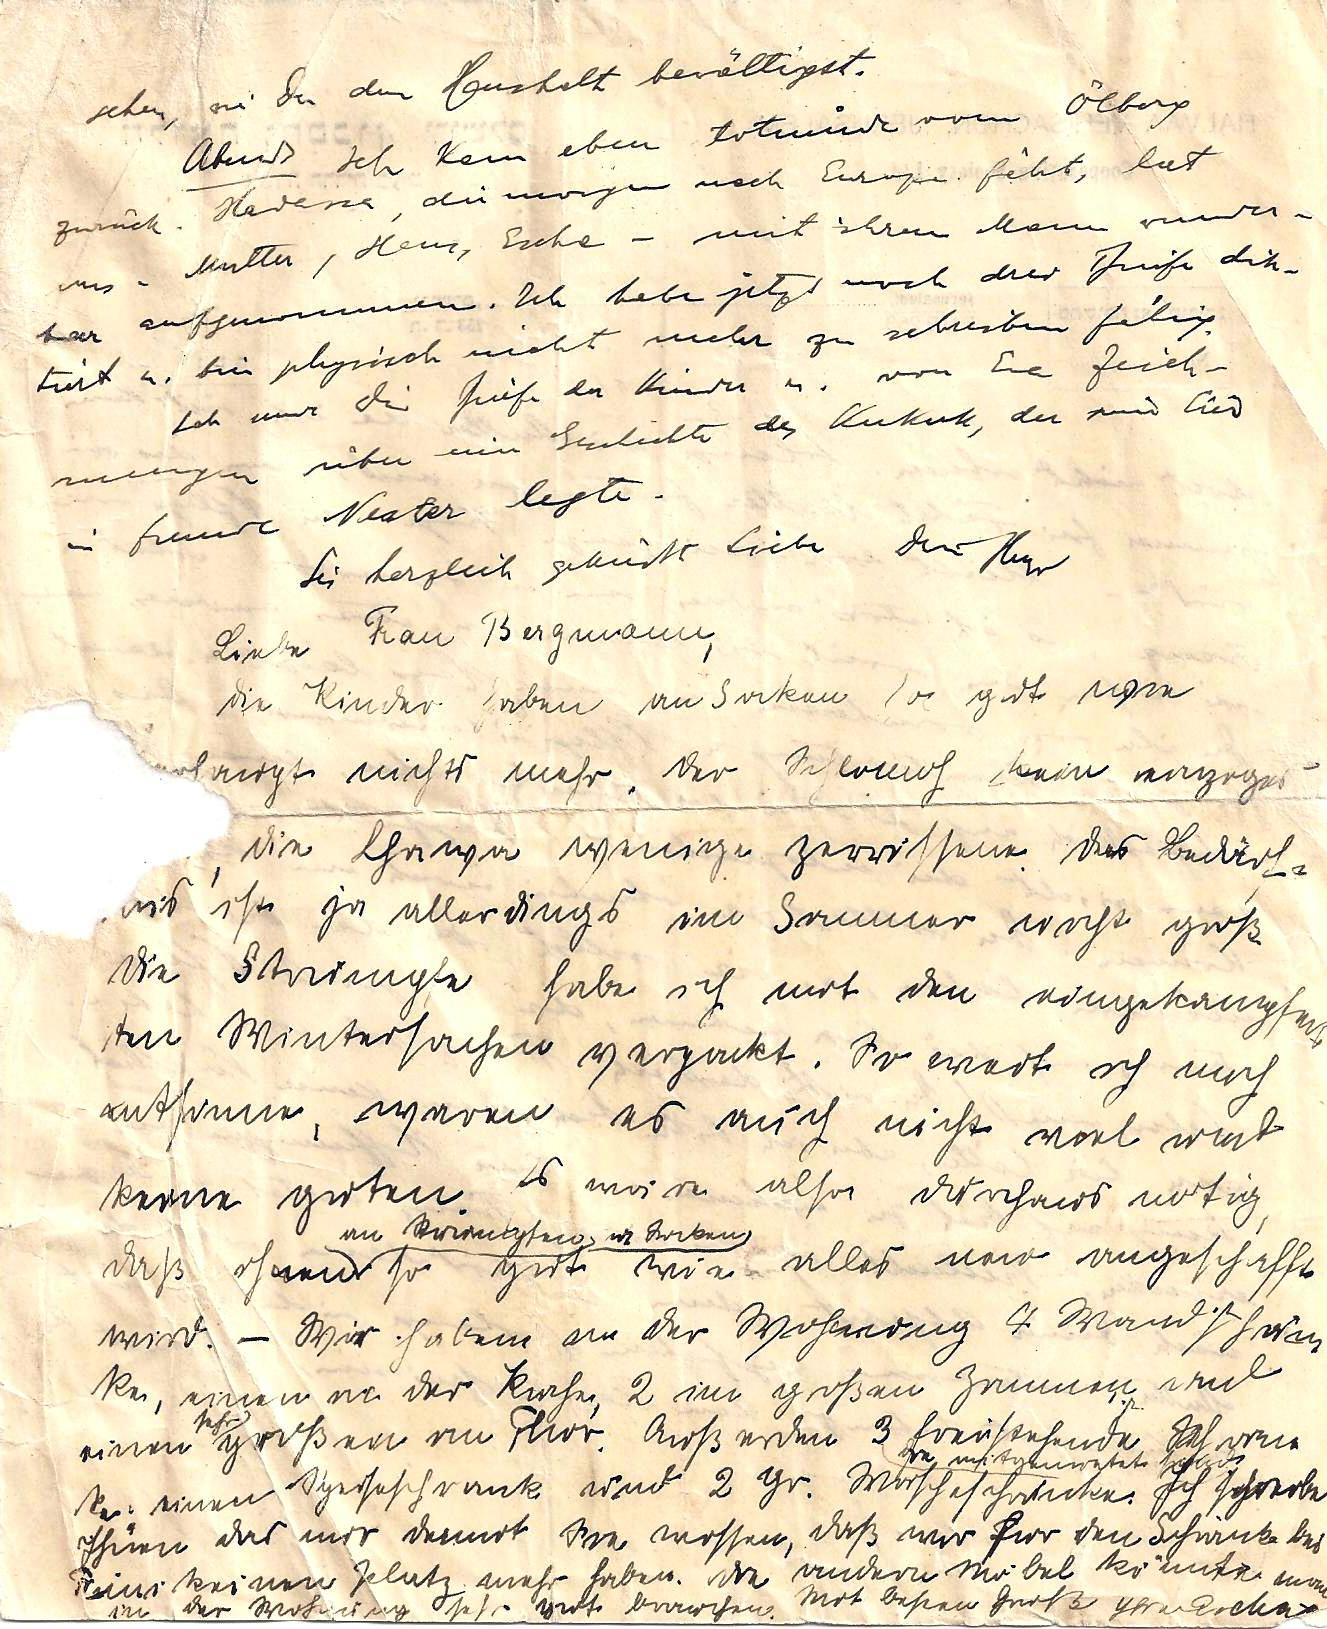 sehen, wie Du den Haushalt bewältigst.
Abends Ich kam eben totmüde vom Ölberg
zurück. Hadassa, die morgen nach Europa fährt, hat
uns - Mutter, Hans, Escha - mit ihrem Mann wunder-
bar aufgenommen. Ich habe jetzt noch drei Briefe dik-
tiert u. bin physisch nicht mehr zu schreiben fähig.
Ich die Briefe der Kinder u. von Eva Zeich-
nungen über eine Geschichte des Kukuk, der sein
in fremde Nester legte.
Sei herzlich geküsst Liebe Dein Hugo
Liebe Frau Bergmann,
die Kinder haben an Socken so gut wie
überhaupt nichts mehr, der Schlomoh kein einziges
, die Chawa wenige zerrissene. Das Bedürf-
nis ist ja allerdings im Sommer nicht groß
die Strümpfe habe ich mit den eingekampfer-
ten Wintersachen verpackt. So weit ich mich
entsinne, waren es auch nicht viel und
keine guten. Es wäre also durchaus nötig,
an Strümpfen u Socken
daß ihnen so gut wie alles neu angeschafft
wird. – Wir haben in der Wohnung 4 Wandschrän
ke, einen in der Küche, 2 im großen Zimmer und
einen sehr großen im Flur. Außerdem 3 freistehende Schrän
ke: einen Speiseschrank und 2 gr. Wäscheschränke. Ich schreibe
Ihnen das nur damit Sie wissen, daß wir für den Schrank bei
keinen Platz mehr haben. Die andern Möbel könnte man
in der Wohnung sehr gut brauchen. Mit besten Gruß Ihre Escha